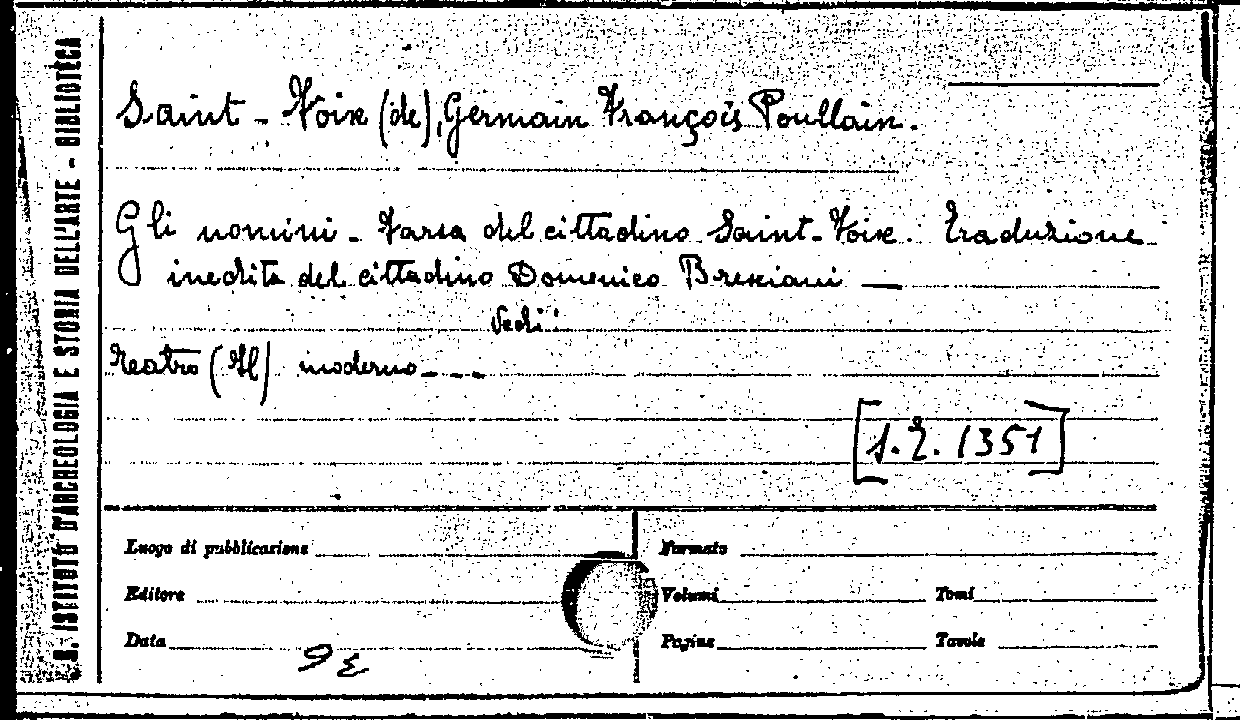 R. ISTITUTO D'ARCHEOLOGIA E STORIA DELL'ARTE - BIBLIOTECA
Saint-Foix (de), Germain François Poullain.
Gli uomini - Farsa del cittadino Saint-Foix. Traduzione
inedita del cittadino Domenico Bresciani —
Vedi:
Teatro (Il) moderno - - -
[1.2.1351]
Luogo di pubblicazione
Formato
Editore
Volumi
Tomi
Data
Pagine
Tavole